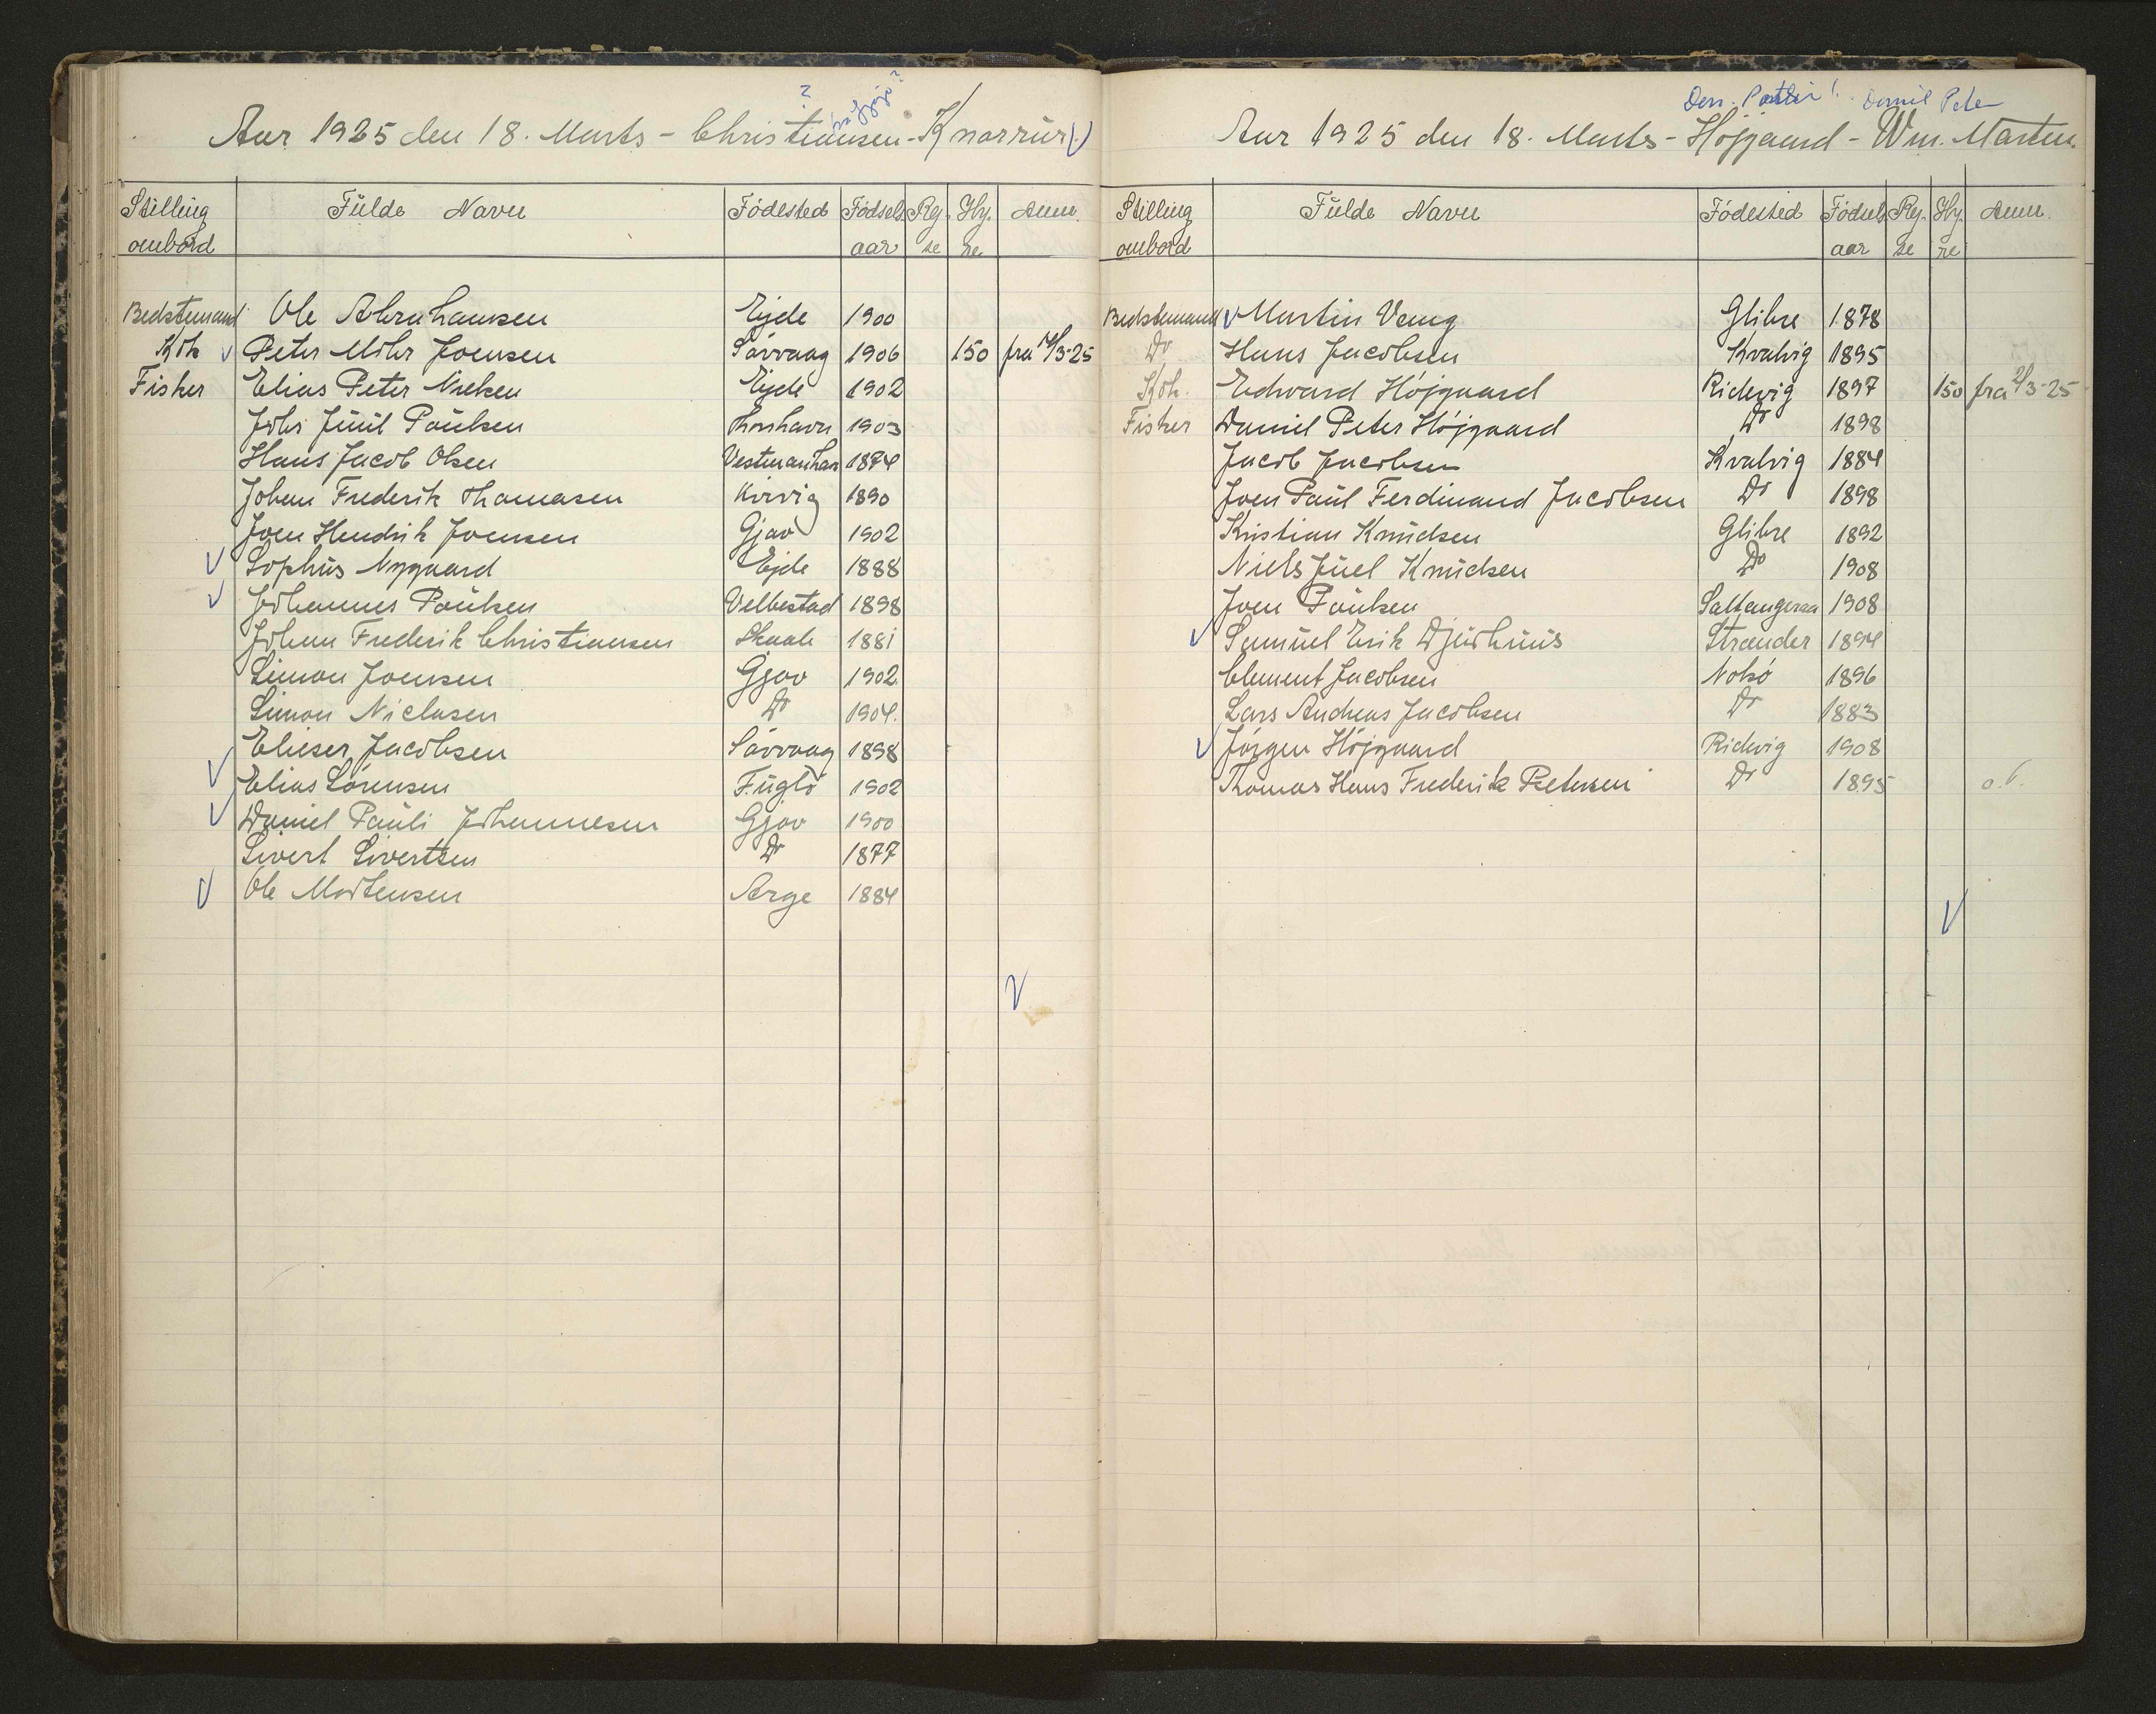 Aar 1925 den 18. Marts - Christiansen - Knørrur
Stilling ombord Fulde Navn Fødested Fødsels aar Rejse Hyre Anm.
Bedstemand Ole Abrahamsen Ejde 1900
Kok Peter Mohr Joensen Sørvaag 1906 150 fra 14/3-25
Fisker Elias Peter Nielsen Ejde 1902
Johs Juul Poulsen Thorshavn 1903
Hans Jacob Olsen Vestmanhav 1874
Johan Frederik Thomasen Kirvig 1890
Joen Hendrik Joensen Gjov 1902
Sophus Nygaard Ejde 1888
Johannes Poulsen Velbestad 1898
Johan Frederik Christiansen Skaale 1881
Simon Joensen Gjov 1902
Simon Niclasen Do 1904.
Elieser Jacobsen Sørvaag 1898
Elias Sørensen Fuglø 1902
Daniel Pauli Johannesen Gjov 1900
Sivert Sivertsen Do 1877
Ole Mortensen Arge 1884
Daniel Peter
Aar 1925 den 18. Marts - Højgaard - Wm. Martin.
Stilling ombord Fulde Navn Fødested Fødsels aar Rejse Hyre Anm.
Bedstemand Martin Veng Glibre 1878
Do Hans Jacobsen Kvalvig 1895
Kok. Edvard Højgaard Ridevig 1897 150 fra 2/3-25
Fisker Daniel Peter Højgaard Do 1898
Jacob Jacobsen Kvalvig 1884
Joen Paul Ferdinand Jacobsen Do 1898
Kristian Knudsen Glibre 1892
Niels Juel Knudsen Do 1908
Joen Poulsen Saltangeraa 1908
Samuel Erik Djurhuus Strænder 1894
Clement Jacobsen Nolsø 1896
Lars Andreas Jacobsen Do 1883
Jørgen Højgaard Ridevig 1908
Thomas Hans Frederik Petersen Do 1895